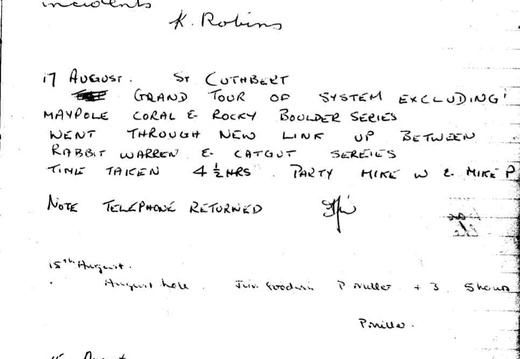 incidents
K. Robins
17 AUGUST. ST CUTHBERT
GRAND TOUR OF SYSTEM EXCLUDING
MAYPOLE CORAL & ROCKY BOULDER SERIES
WENT THROUGH NEW LINK UP BETWEEN
RABBIT WARREN & CATGUT SEREIES
TIME TAKEN 4 ½ HRS. PARTY MIKE W & MIKE P
NOTE TELEPHONE RETURNED
15th August.
August hole. Jim Goodwin P Miller + 3 5 hours
P Miller.
August